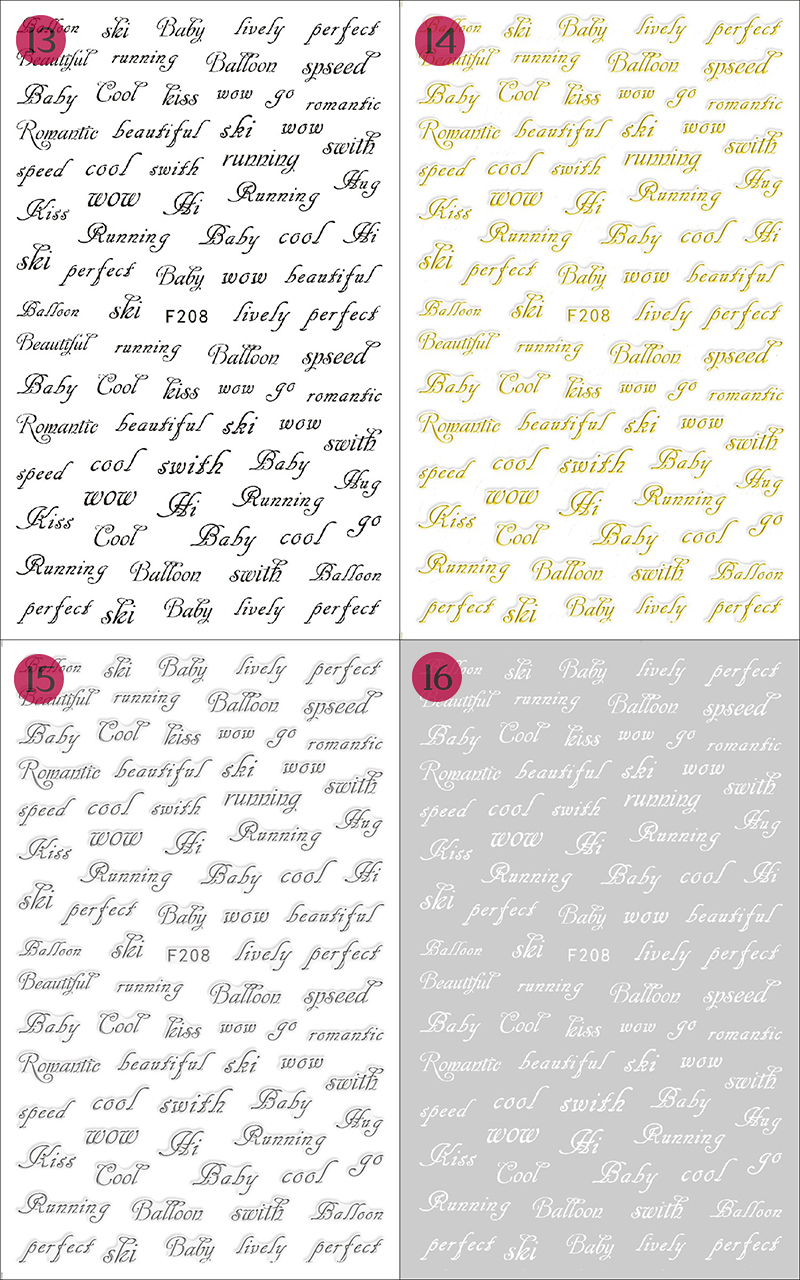 13
Balloon ski Baby lively perfect
Beautiful running Balloon spseed
Baby Cool kiss wow go romantic
Romantic beautiful ski wow swith
speed cool swith running Hug
Kiss wow Hi Running
Running Baby cool Hi
ski perfect Baby wow beautiful
Balloon ski F208 lively perfect
Beautiful running Balloon spseed
Baby Cool kiss wow go romantic
Romantic beautiful ski wow swith
speed cool swith Baby Hug
Kiss wow Hi Running go
Cool Baby cool
Running Balloon swith Balloon
perfect ski Baby lively perfect
14
Balloon ski Baby lively perfect
Beautiful running Balloon spseed
Baby Cool kiss wow go romantic
Romantic beautiful ski wow swith
speed cool swith running Hug
Kiss wow Hi Running
Running Baby cool Hi
ski perfect Baby wow beautiful
Balloon ski F208 lively perfect
Beautiful running Balloon spseed
Baby Cool kiss wow go romantic
Romantic beautiful ski wow swith
speed cool swith Baby Hug
Kiss wow Hi Running go
Cool Baby cool
Running Balloon swith Balloon
perfect ski Baby lively perfect
15
Balloon ski Baby lively perfect
Beautiful running Balloon spseed
Baby Cool kiss wow go romantic
Romantic beautiful ski wow swith
speed cool swith running Hug
Kiss wow Hi Running
Running Baby cool Hi
ski perfect Baby wow beautiful
Balloon ski F208 lively perfect
Beautiful running Balloon spseed
Baby Cool kiss wow go romantic
Romantic beautiful ski wow swith
speed cool swith Baby Hug
Kiss wow Hi Running go
Cool Baby cool
Running Balloon swith Balloon
perfect ski Baby lively perfect
16
Balloon ski Baby lively perfect
Beautiful running Balloon spseed
Baby Cool kiss wow go romantic
Romantic beautiful ski wow swith
speed cool swith running Hug
Kiss wow Hi Running
Running Baby cool Hi
ski perfect Baby wow beautiful
Balloon ski F208 lively perfect
Beautiful running Balloon spseed
Baby Cool kiss wow go romantic
Romantic beautiful ski wow swith
speed cool swith Baby Hug
Kiss wow Hi Running go
Cool Baby cool
Running Balloon swith Balloon
perfect ski Baby lively perfect